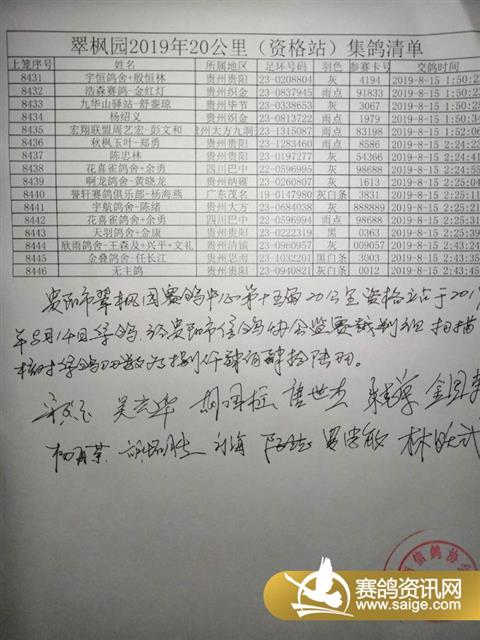 翠枫园2019年20公里（资格站）集鸽清单
上笼序号 姓名 所属地区 足环号码 羽色 参赛卡号 交鸽时间
8431 宇恒鸽舍+殷恒林 贵州贵阳 23-0208804 灰 4194 2019-8-15 1:50:2
8432 浩森赛鸽-金红灯 贵州织金 23-0837945 雨点 91833 2019-8-15 1:50:2
8433 九华山驿站-舒銮琼 贵州毕节 23-0338653 灰 3067 2019-8-15 1:50:2
8434 杨绍义 贵州织金 23-0813712 雨点 1979 2019-8-15 1:50:3
8435 宏翔联盟周艺宏-彭文和 贵州大方九洞 23-1315087 雨点 83198 2019-8-15 1:52:0
8436 秋枫玉叶-郑勇 贵州贵阳 23-1283460 雨点 8586 2019-8-15 2:24:2
8437 陈忠林 贵州贵阳 23-0197277 灰 54366 2019-8-15 2:24:4
8438 花喜雀鸽舍-余勇 四川巴中 22-0596995 雨点 98688 2019-8-15 2:24:5
8439 啊龙鸽舍-黄晓龙 贵州纳雍 23-0260807 灰 1613 2019-8-15 2:25:0
8440 誉轩赛鸽俱乐部-杨海燕 广东茂名 19-0147980 灰白条 3831 2019-8-15 2:25:1
8441 宇航鸽舍-陈绪 贵州大方 23-0684038 灰 888889 2019-8-15 2:25:2
8442 花喜雀鸽舍-余勇 四川巴中 22-0596994 雨点 98688 2019-8-15 2:25:3
8443 天羽鸽舍-金康 贵州贵阳 23-0222319 黑 0363 2019-8-15 2:25:3
8444 欣雨鸽舍-王森及+兴平+文礼 贵州清镇 23-0960957 灰 009057 2019-8-15 2:43:3
8445 金叠鸽舍-任长江 贵州思南 23-1032201 黑白条 3003 2019-8-15 2:43:4
8446 无主鸽 贵州贵阳 23-0940821 灰白条 0012 2019-8-15 2:43:4
贵阳市翠枫园赛鸽中心第十五届20公里资格站于2019
年8月14日集鸽，经贵阳市信鸽协会监赛裁判组扫描
核对集鸽羽数为捌仟肆佰肆拾陆羽。
吴云华
刘海 林
信鸽协
赛鸽资讯网
www.saige.com